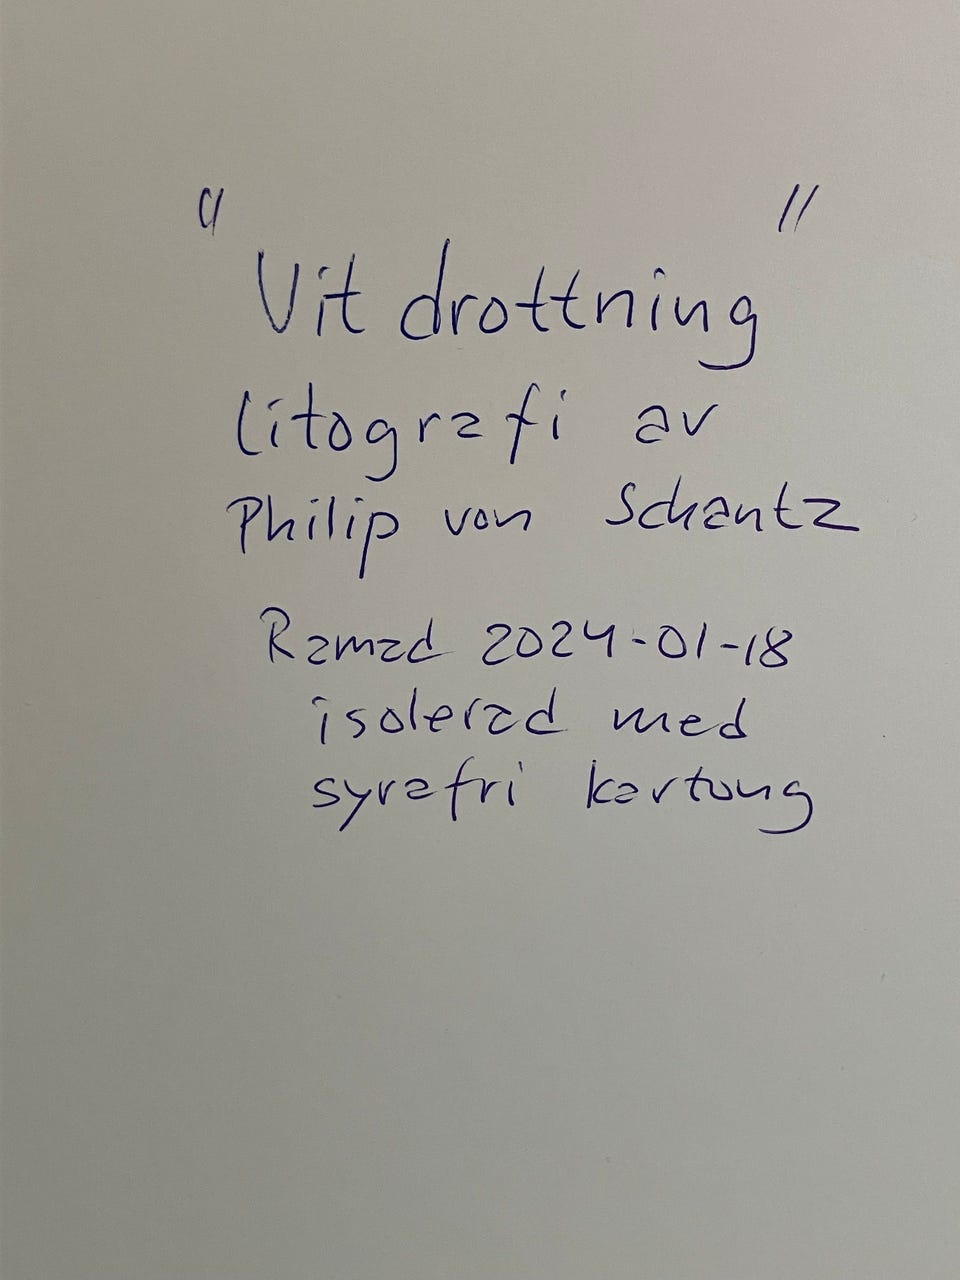 "Vit drottning"
litografi av
Philip von Schantz
Ramad 2024-01-18
isolerad med
syrafri kartong